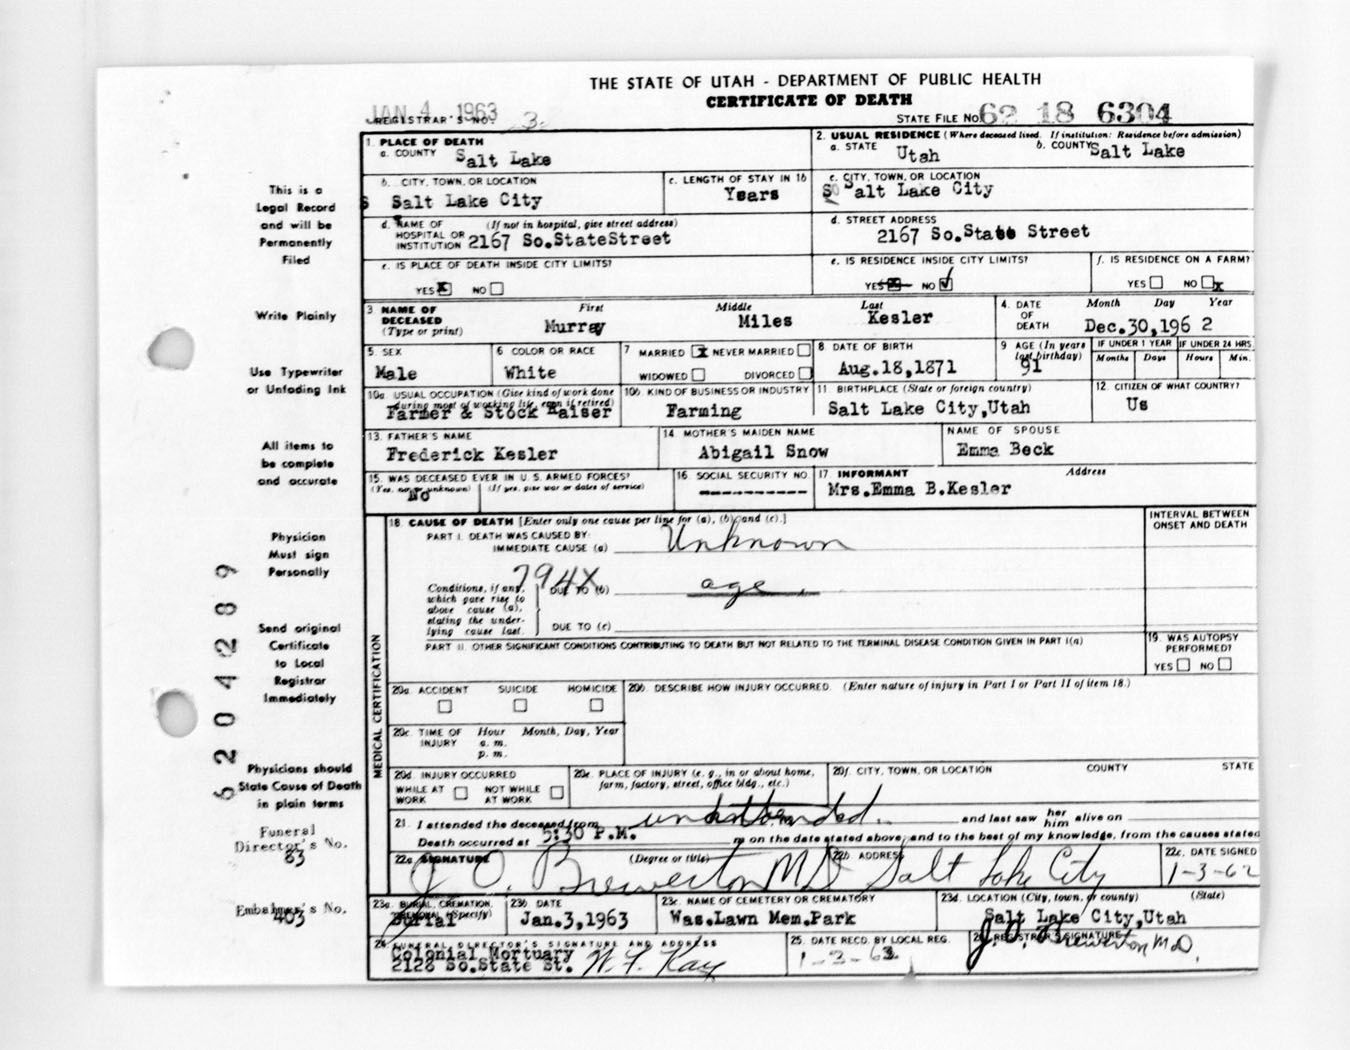 THE STATE OF UTAH - DEPARTMENT OF PUBLIC HEALTH
CERTIFICATE OF DEATH
JAN 4 1963
REGISTRAR'S NO. 3
STATE FILE NO. 62 18 6304
1. PLACE OF DEATH
a. COUNTY Salt Lake
2. USUAL RESIDENCE (Where deceased lived. If institution: Residence before admission)
a. STATE Utah b. COUNTY Salt Lake
b. CITY, TOWN, OR LOCATION
S Salt Lake City
c. LENGTH OF STAY IN 1b
Years
c. CITY, TOWN, OR LOCATION
So Salt Lake City
d. NAME OF HOSPITAL OR INSTITUTION (If not in hospital, give street address)
2167 So.StateStreet
d. STREET ADDRESS
2167 So.State Street
e. IS PLACE OF DEATH INSIDE CITY LIMITS?
YES X NO
e. IS RESIDENCE INSIDE CITY LIMITS?
YES X NO ✓
f. IS RESIDENCE ON A FARM?
YES NO X
3 NAME OF DECEASED (Type or print)
First Middle Last
Murray Miles Kesler
4. DATE OF DEATH Month Day Year
Dec.30,196 2
5. SEX
Male
6 COLOR OR RACE
White
7 MARRIED X NEVER MARRIED
WIDOWED DIVORCED
8 DATE OF BIRTH
Aug.18,1871
9 AGE (In years last birthday)
91
IF UNDER 1 YEAR IF UNDER 24 HRS.
Months Days Hours Min.
10a. USUAL OCCUPATION (Give kind of work done during most of working life, even if retired)
Farmer & Stock Raiser
10b. KIND OF BUSINESS OR INDUSTRY
Farming
11 BIRTHPLACE (State or foreign country)
Salt Lake City,Utah
12. CITIZEN OF WHAT COUNTRY?
Us
13. FATHER'S NAME
Frederick Kesler
14 MOTHER'S MAIDEN NAME
Abigail Snow
NAME OF SPOUSE
Emma Beck
15. WAS DECEASED EVER IN U.S. ARMED FORCES?
(Yes, no, or unknown) (If yes, give war or dates of service)
No
16 SOCIAL SECURITY NO.
-----------
17 INFORMANT Address
Mrs.Emma B.Kesler
18. CAUSE OF DEATH [Enter only one cause per line for (a), (b) and (c).]
INTERVAL BETWEEN ONSET AND DEATH
PART I. DEATH WAS CAUSED BY:
IMMEDIATE CAUSE (a) Unknown
794X
Conditions, if any, which gave rise to above cause (a), stating the underlying cause last.
DUE TO (b) age.
DUE TO (c)
PART II. OTHER SIGNIFICANT CONDITIONS CONTRIBUTING TO DEATH BUT NOT RELATED TO THE TERMINAL DISEASE CONDITION GIVEN IN PART I(a)
19. WAS AUTOPSY PERFORMED?
YES NO
MEDICAL CERTIFICATION
20a. ACCIDENT SUICIDE HOMICIDE
20b. DESCRIBE HOW INJURY OCCURRED. (Enter nature of injury in Part I or Part II of item 18.)
20c. TIME OF INJURY Hour Month, Day, Year
a. m.
p. m.
20d. INJURY OCCURRED
WHILE AT WORK NOT WHILE AT WORK
20e. PLACE OF INJURY (e. g., in or about home, farm, factory, street, office bldg., etc.)
20f. CITY, TOWN, OR LOCATION COUNTY STATE
21. I attended the deceased from unattended. and last saw her him alive on
Death occurred at 5:30 P.M. m on the date stated above, and to the best of my knowledge, from the causes stated
22a. SIGNATURE (Degree or title)
J O. Brewerton MD
22b. ADDRESS
Salt Lake City
22c. DATE SIGNED
1-3-62
23a. BURIAL, CREMATION, REMOVAL (Specify)
Burial
23b. DATE
Jan.3,1963
23c. NAME OF CEMETERY OR CREMATORY
Was.Lawn Mem.Park
23d. LOCATION (City, town, or county) (State)
Salt Lake City,Utah
24. FUNERAL DIRECTOR'S SIGNATURE AND ADDRESS
Colonial Mortuary
2128 So.State St. W. F. Kay
25. DATE RECD. BY LOCAL REG.
1-3-63
26. REGISTRAR'S SIGNATURE
J. O. Brewerton M.D.
This is a
Legal Record
and will be
Permanently
Filed
Write Plainly
Use Typewriter
or Unfading Ink
All items to
be complete
and accurate
Physician
Must sign
Personally
Send original
Certificate
to Local
Registrar
Immediately
Physicians should
State Cause of Death
in plain terms
Funeral
Director's No.
83
Embalmer's No.
403
6204289